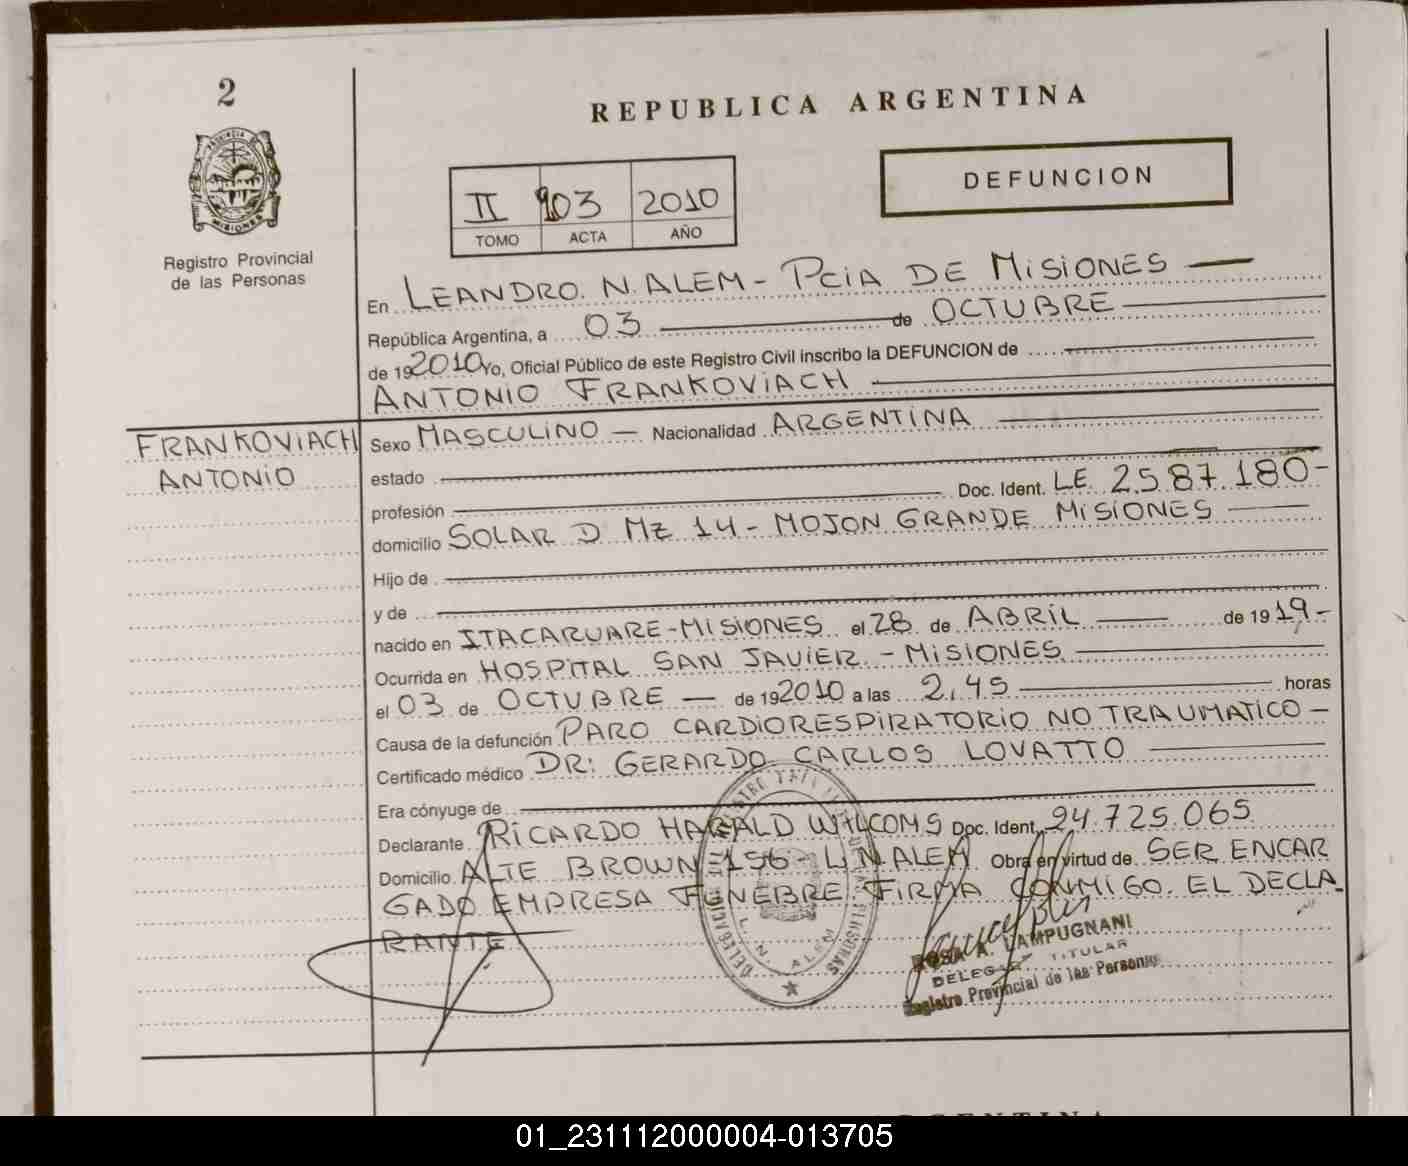 2
REPUBLICA ARGENTINA
DEFUNCION
II 103 2010
TOMO ACTA AÑO
Registro Provincial
de las Personas
En LEANDRO. N. ALEM - PCiA DE MiSiONES
República Argentina, a 03 de OCTUBRE
de 19 2010 Yo, Oficial Público de este Registro Civil inscribo la DEFUNCION de
ANTONIO FRANKOViACH
FRANKOViACH
ANTONiO
Sexo MASCULINO - Nacionalidad ARGENTINA
estado
profesión Doc. Ident. LE 2.587.180-
domicilio SOLAR D Mz 14 - MOJON GRANDE MiSiONES
Hijo de
y de
nacido en ITACARUARE-MiSiONES el 28 de ABRiL de 19 19-
Ocurrida en HOSPiTAL SAN JAViER - MiSiONES
el 03 de OCTUBRE - de 19 2010 a las 2,45 horas
Causa de la defunción PARO CARDiORESPiRATORiO NO TRAUMATiCO -
Certificado médico DR: GERARDO CARLOS LOVATTO
Era cónyuge de
Declarante RiCARDO HARALD WiLCOMS Doc. Ident. 24.725.065
Domicilio ALTE BROWN 156 - L.N.ALEM Obra en virtud de SER ENCAR
GADO EMPRESA FUNEBRE. FiRMA CONMiGO. EL DECLA-
RANTE.
L. N. ALEM
ROSA A. LAMPUGNANI
DELEGADA TITULAR
Registro Provincial de las Personas
ARGENTINA
01_231112000004-013705